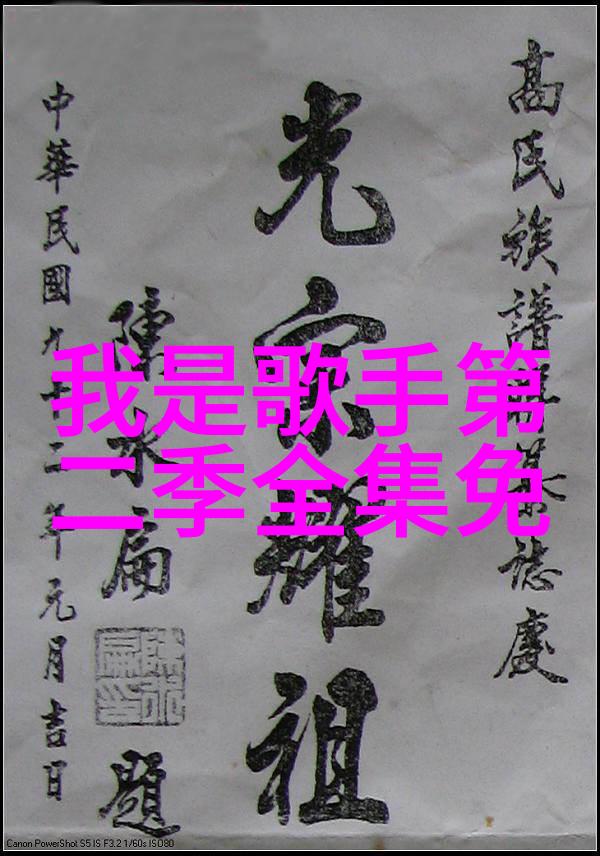 我是歌手第
二季全集免
高氏族譜誌慶
光宗耀祖
陳水扁
題
中華民國九十二年元月吉日
Canon PowerShot S5 IS F3.2 1/60s ISO80